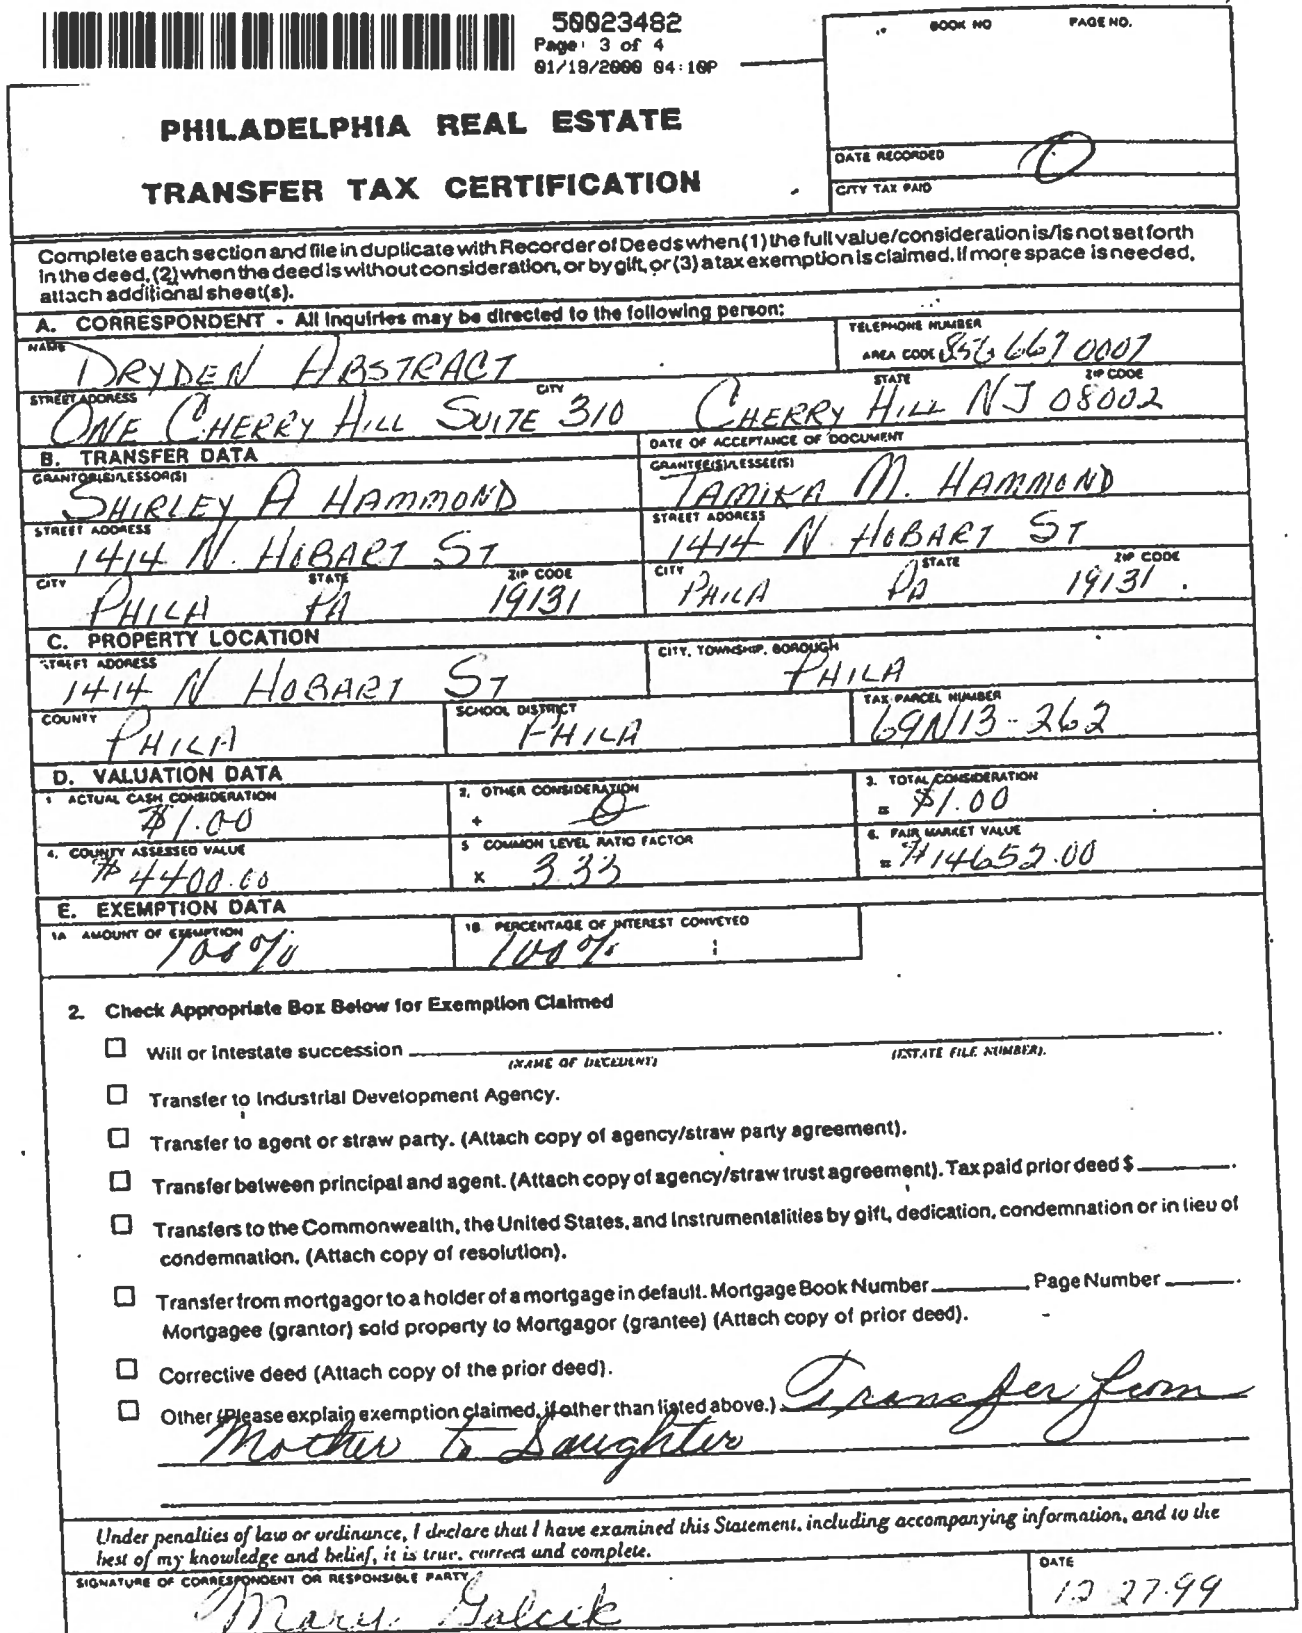 50023482
Page: 3 of 4
01/18/2000 04:10P
BOOK NO PAGE NO.
PHILADELPHIA REAL ESTATE
TRANSFER TAX CERTIFICATION
DATE RECORDED
CITY TAX PAID
Complete each section and file in duplicate with Recorder of Deeds when (1) the full value/consideration is/is not set forth
in the deed, (2) when the deed is without consideration, or by gift, or (3) a tax exemption is claimed. If more space is needed,
attach additional sheet(s).
A. CORRESPONDENT - All Inquiries may be directed to the following person:
NAME TELEPHONE NUMBER
DRYDEN ABSTRACT AREA CODE (856 667 0007
STREET ADDRESS CITY STATE ZIP CODE
ONE CHERRY HILL SUITE 310 CHERRY HILL NJ 08002
B. TRANSFER DATA DATE OF ACCEPTANCE OF DOCUMENT
GRANTOR(S)/LESSOR(S) GRANTEE(S)/LESSEE(S)
SHIRLEY A HAMMOND TAMIKA M. HAMMOND
STREET ADDRESS STREET ADDRESS
1414 N. HOBART ST 1414 N. HOBART ST
CITY STATE ZIP CODE CITY STATE ZIP CODE
PHILA PA 19131 PHILA PA 19131
C. PROPERTY LOCATION
STREET ADDRESS CITY, TOWNSHIP, BOROUGH
1414 N HOBART ST PHILA
COUNTY SCHOOL DISTRICT TAX PARCEL NUMBER
PHILA PHILA 69N13-262
D. VALUATION DATA
1 ACTUAL CASH CONSIDERATION 2. OTHER CONSIDERATION 3. TOTAL CONSIDERATION
$1.00 + 0 = $1.00
4. COUNTY ASSESSED VALUE 5 COMMON LEVEL RATIO FACTOR 6. FAIR MARKET VALUE
$4400.00 x 3.33 = $14652.00
E. EXEMPTION DATA
1A AMOUNT OF EXEMPTION 1B. PERCENTAGE OF INTEREST CONVEYED
100% 100%
2. Check Appropriate Box Below for Exemption Claimed
Will or intestate succession
(NAME OF DECEDENT) (ESTATE FILE NUMBER).
Transfer to Industrial Development Agency.
Transfer to agent or straw party. (Attach copy of agency/straw party agreement).
Transfer between principal and agent. (Attach copy of agency/straw trust agreement). Tax paid prior deed $ ______.
Transfers to the Commonwealth, the United States, and Instrumentalities by gift, dedication, condemnation or in lieu of
condemnation. (Attach copy of resolution).
Transfer from mortgagor to a holder of a mortgage in default. Mortgage Book Number ______ Page Number ______.
Mortgagee (grantor) sold property to Mortgagor (grantee) (Attach copy of prior deed).
Corrective deed (Attach copy of the prior deed).
Other (Please explain exemption claimed, if other than listed above.) Transfer from
Mother to Daughter
Under penalties of law or ordinance, I declare that I have examined this Statement, including accompanying information, and to the
best of my knowledge and belief, it is true, correct and complete.
SIGNATURE OF CORRESPONDENT OR RESPONSIBLE PARTY DATE
Mary Galcik 12-27-99